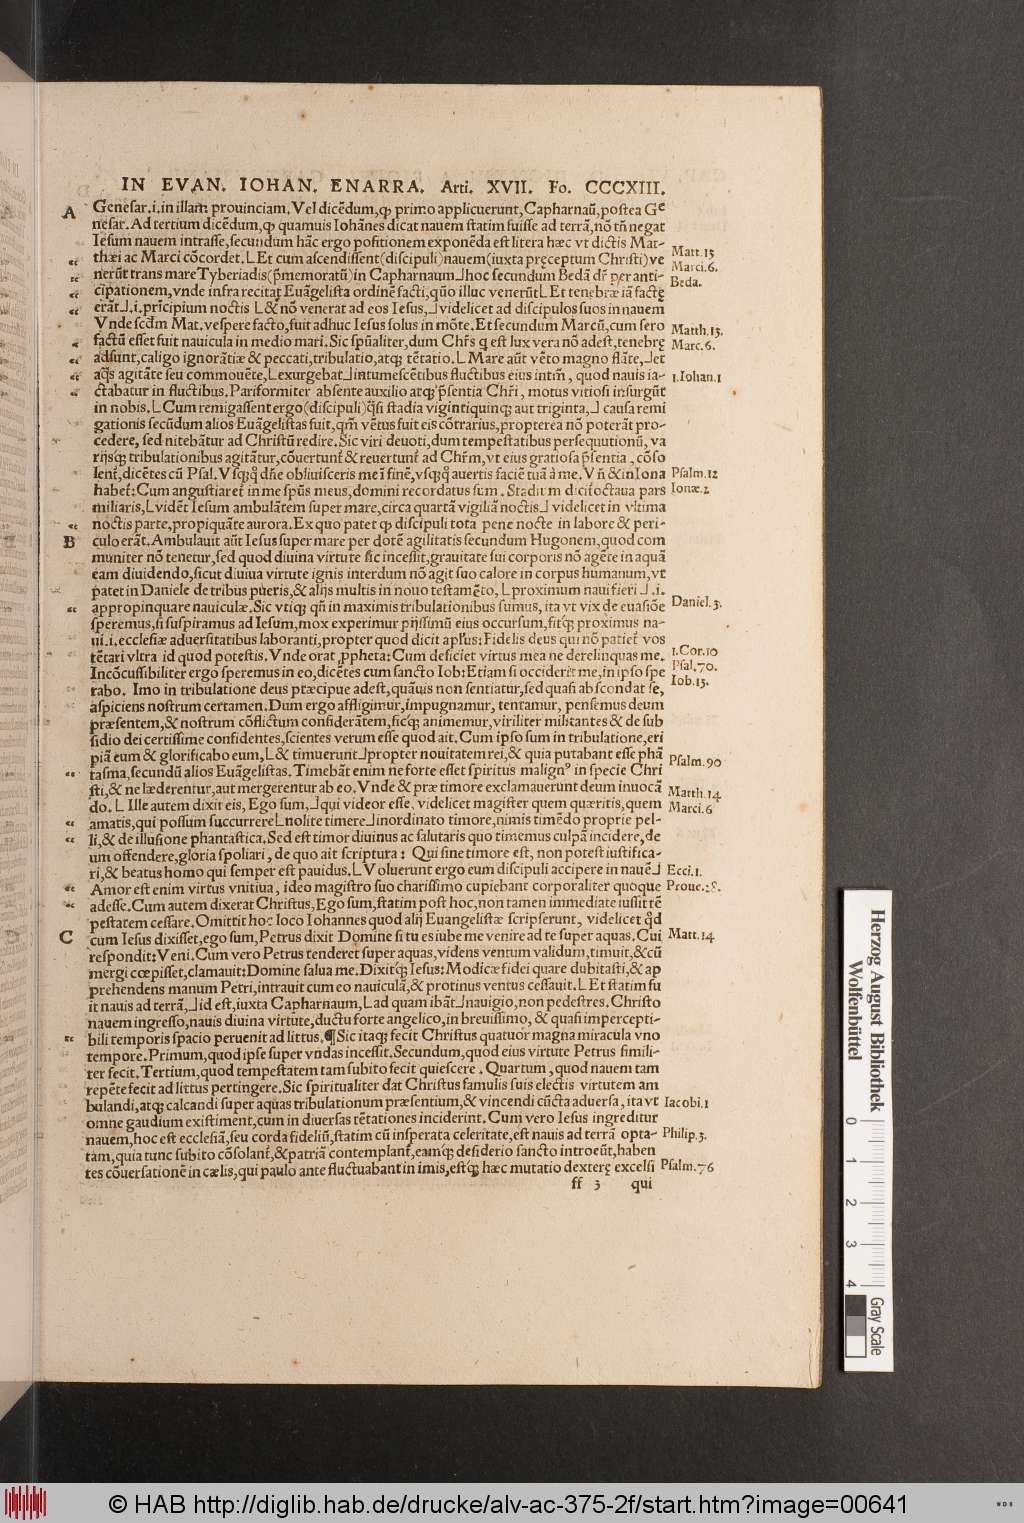 IN EVAN. IOHAN. ENARRA. Arti. XVII. Fo. CCCXIII.
A Genesar.i.in illam prouinciam. Vel dicēdum, ꝙ primo applicuerunt, Capharnaū, postea Ge
nesar. Ad tertium dicēdum, ꝙ quamuis Iohānes dicat nauem statim fuisse ad terrā, nō tñ negat
Iesum nauem intrasse, secundum hāc ergo positionem exponēda est litera hæc vt dictis Mat-
thæi ac Marci cōcordet. L Et cum ascendissent (discipuli) nauem (iuxta pręceptum Christi) ve
Matt. 15
Marci. 6.
nerūt trans mare Tyberiadis (p̄memoratū) in Capharnaum⅃hoc secundum Bedā dr̄ per anti-
Beda.
cipationem, vnde infra recitat Euāgelista ordinē facti, qūo illuc venerūt L Et tenebræ iā factę
erāt⅃.i.prīcipium noctis L & nō venerat ad eos Iesus,⅃ videlicet ad discipulos suos in nauem
Vnde scd̄m Mat. vespere facto, fuit adhuc Iesus solus in mōte. Et secundum Marcū, cum sero
Matth. 15.
factū esset fuit nauicula in medio mari. Sic spūaliter, dum Chr̄s q est lux vera nō adest, tenebrę
Marc. 6.
adsunt, caligo ignorātiæ & peccati, tribulatio, atqꝫ tētatio. L Mare aūt vēto magno flāte,⅃et
aq̄s agitāte seu commouēte, L exurgebat⅃intumescētibus fluctibus eius intm̄, quod nauis ia-
1. Iohan. 1
ctabatur in fluctibus. Pariformiter absente auxilio atqꝫ p̄sentia Chr̄i, motus vitiosi insurgūt
in nobis. L Cum remigassent ergo (discipuli) q̄si stadia vigintiquinqꝫ aut triginta,⅃ causa remi
gationis secūdum alios Euāgelistas fuit, qm̄ vētus fuit eis cōtrarius, propterea nō poterāt pro-
cedere, sed nitebātur ad Christū redire. Sic viri deuoti, dum tempestatibus persequutionū, va
rijsqꝫ tribulationibus agitātur, cōuertunt̄ & reuertunt̄ ad Chr̄m, vt eius gratiosa p̄sentia cōso
lent̄, dicētes cū Psal. Vsqꝫq̄ dn̄e obliuisceris me ī finē, vsqꝫq̄ auertis faciē tuā à me. Vn̄ & in Iona
Psalm. 12
habet̄: Cum angustiaret̄ in me spūs meus, domini recordatus sum. Stadium dicit̄ octaua pars
Ionæ. 2
miliaris, L vidēt Iesum ambulātem super mare, circa quartā vigiliā noctis⅃ videlicet in vltima
noctis parte, propiquāte aurora. Ex quo patet ꝙ discipuli tota pene nocte in labore & peri-
B culo erāt. Ambulauit aūt Iesus super mare per dotē agilitatis secundum Hugonem, quod com
muniter nō tenetur, sed quod diuina virtute sic incessit, grauitate sui corporis nō agēte in aquā
eam diuidendo, sicut diuiua virtute ignis interdum nō agit suo calore in corpus humanum, vt
patet in Daniele de tribus pueris, & alijs multis in nouo testamēto, L proximum naui fieri⅃.i.
appropinquare nauiculæ. Sic vtiqꝫ qñ in maximis tribulationibus sumus, ita vt vix de euasiōe
Daniel. 3.
speremus, si suspiramus ad Iesum, mox experimur pijssimū eius occursum, fitqꝫ proximus na-
ui.i. ecclesiæ aduersitatibus laboranti, propter quod dicit apl̄us: Fidelis deus qui nō patiet̄ vos
tētari vltra id quod potestis. Vnde orat ꝓpheta: Cum deficiet virtus mea ne derelinquas me.
1. Cor. 10
Incōcussibiliter ergo speremus in eo, dicētes cum sancto Iob: Etiam si occiderit me, in ipso spe
Psal. 70.
rabo. Imo in tribulatione deus præcipue adest, quāuis non sentiatur, sed quasi abscondat se,
Iob. 13.
aspiciens nostrum certamen. Dum ergo affligimur, impugnamur, tentamur, pensemus deum
præsentem, & nostrum cōflictum considerātem, sicqꝫ animemur, viriliter militantes & de sub
sidio dei certissime confidentes, scientes verum esse quod ait. Cum ipso sum in tribulatione, eri
piā eum & glorificabo eum, L & timuerunt⅃propter nouitatem rei, & quia putabant esse phā
Psalm. 90
tasma, secundū alios Euāgelistas. Timebāt enim ne forte esset spiritus malignꝰ in specie Chri
sti, & ne læderentur, aut mergerentur ab eo. Vnde & præ timore exclamauerunt deum inuocā
Matth. 14
do. L Ille autem dixit eis, Ego sum,⅃qui videor esse, videlicet magister quem quæritis, quem
Marci. 6
amatis, qui possum succurrere L nolite timere⅃inordinato timore, nimis timēdo proprie pel-
li, & de illusione phantastica. Sed est timor diuinus ac salutaris quo timemus culpā incidere, de
um offendere, gloria spoliari, de quo ait scriptura: Qui sine timore est, non potest iustifica-
ri, & beatus homo qui semper est pauidus. L Voluerunt ergo eum discipuli accipere in nauē⅃
Ecci. 1.
Amor est enim virtus vnitiua, ideo magistro suo charissimo cupiebant corporaliter quoque
Proue. 28.
adesse. Cum autem dixerat Christus, Ego sum, statim post hoc, non tamen immediate iussit tē
pestatem cessare. Omittit hoc loco Iohannes quod alij Euangelistæ scripserunt, videlicet qd̄
C cum Iesus dixisset, ego sum, Petrus dixit Domine si tu es iube me venire ad te super aquas. Cui
Matt. 14
respondit: Veni. Cum vero Petrus tenderet super aquas, videns ventum validum, timuit, & cū
mergi cœpisset, clamauit: Domine salua me. Dixitqꝫ Iesus: Modicæ fidei quare dubitasti, & ap
prehendens manum Petri, intrauit cum eo nauiculā, & protinus ventus cessauit. L Et statim fu
it nauis ad terrā,⅃id est, iuxta Capharnaum, L ad quam ibāt⅃nauigio, non pedestres. Christo
nauem ingresso, nauis diuina virtute, ductu forte angelico, in breuissimo, & quasi impercepti-
bili temporis spacio peruenit ad littus. ¶ Sic itaqꝫ fecit Christus quatuor magna miracula vno
tempore. Primum, quod ipse super vndas incessit. Secundum, quod eius virtute Petrus simili-
ter fecit. Tertium, quod tempestatem tam subito fecit quiescere. Quartum, quod nauem tam
repēte fecit ad littus pertingere. Sic spiritualiter dat Christus famulis suis electis virtutem am
bulandi, atqꝫ calcandi super aquas tribulationum præsentium, & vincendi cūcta aduersa, ita vt
Iacobi. 1
omne gaudium existiment, cum in diuersas tētationes inciderint. Cum vero Iesus ingreditur
nauem, hoc est ecclesiā, seu corda fideliū, statim cū insperata celeritate, est nauis ad terrā opta-
Philip. 3.
tam, quia tunc subito cōsolant̄, & patriā contemplant̄, eamqꝫ desiderio sancto introeūt, haben
tes cōuersationē in cælis, qui paulo ante fluctuabant in imis, estqꝫ hæc mutatio dexterę excelsi
Psalm. 76
ff 3 qui
Herzog August Bibliothek
Wolfenbüttel
0 1 2 3 4
Gray Scale
© HAB http://diglib.hab.de/drucke/alv-ac-375-2f/start.htm?image=00641